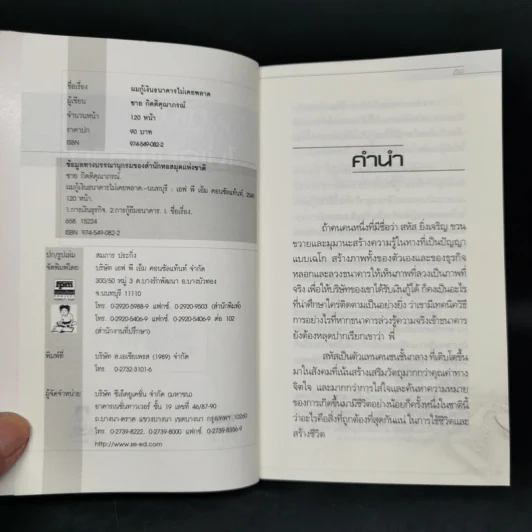 ชื่อเรื่อง ผมกู้เงินธนาคารไม่เคยพลาด
ผู้เขียน ชาย กิตติคุณาภรณ์
จำนวนหน้า 120 หน้า
ราคาปก 90 บาท
ISBN 974-549-082-2
ข้อมูลทางบรรณานุกรมของสำนักหอสมุดแห่งชาติ
ชาย กิตติคุณาภรณ์.
ผมกู้เงินธนาคารไม่เคยพลาด.--นนทบุรี : เอฟ พี เอ็ม คอนซัลแท้นท์, 2546
120 หน้า.
1.การเงินธุรกิจ. 2.การกู้ยืมธนาคาร. I. ชื่อเรื่อง.
658. 15224
ISBN 974-549-082-2
ปก/รูปเล่ม สมการ ประกิ่ง
จัดพิมพ์โดย บริษัท เอฟ พี เอ็ม คอนซัลแท้นท์ จำกัด
300/50 หมู่ 3 ต.บางรักพัฒนา อ.บางบัวทอง
จ.นนทบุรี 11110
โทร. 0-2920-5988-9 แฟกซ์. 0-2920-9503 (สำนักพิมพ์)
โทร. 0-2920-5406-9 แฟกซ์. 0-2920-5406-9 ต่อ 102
(สำนักงานที่ปรึกษา)
พิมพ์ที่ บริษัท ส.เอเซียเพรส (1989) จำกัด
โทร. 0-2732-3101-6
ผู้จัดจำหน่าย บริษัท ซีเอ็ดยูเคชั่น จำกัด (มหาชน)
อาคารเนชั่นทาวเวอร์ ชั้น 19 เลขที่ 46/87-90
ถ.บางนา-ตราด แขวงบางนา เขตบางนา กรุงเทพฯ 10260
โทร. 0-2739-8222, 0-2739-8000 แฟกซ์. 0-2739-8356-9
http://www.se-ed.com
คำนำ
ถ้าคนคนหนึ่งที่มีชื่อว่า สหัส ยิ่งเจริญ ขวน
ขวายและมุมานะสร้างความรู้ในทางที่เป็นปัญญา
แบบเฉโก สร้างภาพทั้งของตัวเองและของธุรกิจ
หลอกและลวงธนาคารให้เห็นภาพที่ลวงเป็นภาพที่
จริง เพื่อให้บริษัทของเขาได้รับเงินกู้ได้ ก็คงเป็นอะไร
ที่น่าศึกษาใคร่ติดตามเป็นอย่างยิ่ง ว่าเขามีเทคนิควิธี
การอย่างไรที่หากธนาคารล่วงรู้ความจริงเข้าธนาคาร
ยังต้องหลุดปากเรียกเขาว่า พี่
สหัสเป็นตัวแทนคนชนชั้นกลาง ที่เติบโตขึ้น
มาในสังคมที่เน้นสร้างเสริมวัตถุมากกว่าคุณค่าทาง
จิตใจ และมากกว่าการใส่ใจและค้นหาความหมาย
ของการเกิดขึ้นมามีชีวิตอย่างน้อยก็ครั้งหนึ่งในชาตินี้
ว่าอะไรคือสิ่งที่ถูกต้องที่สุดกันแน่ ในการใช้ชีวิตและ
สร้างชีวิต